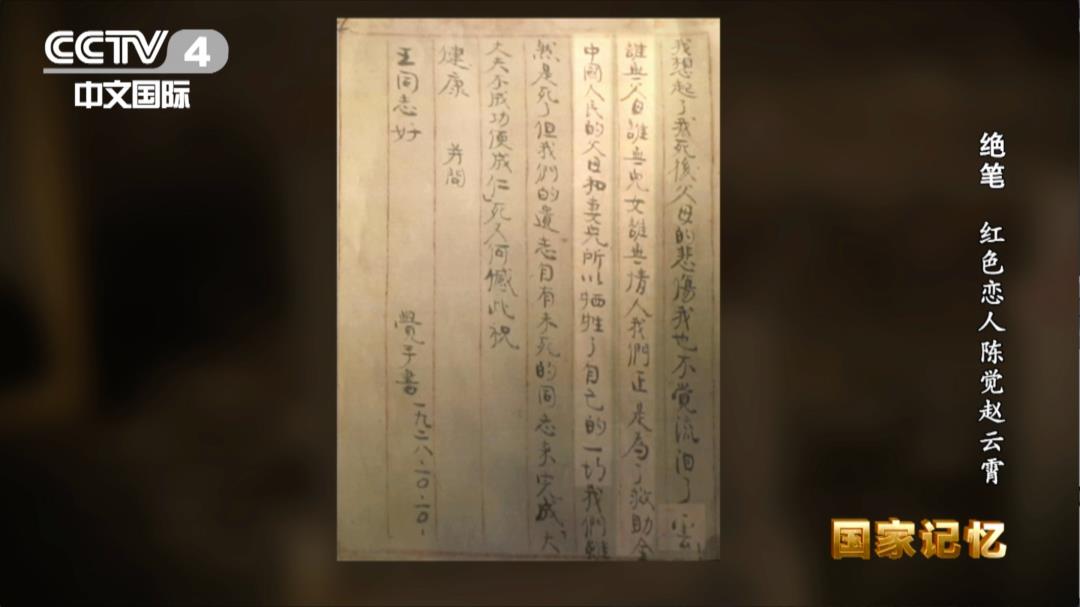 CCTV 4
中文国际
我想起了我死後父母的悲傷我也不覺流泪了 雲
誰無父母誰無兒女誰無情人我們正是為了救助全
中國人民的父母和妻兒所以牺牲了自己的一切我們雖
然是死了但我們的遺志自有未死的同志來完成「大
丈夫不成功便成仁」死又何憾此祝
健康 并問
王同志好
覺手書 一九二八·一〇·一〇·
绝笔 红色恋人陈觉赵云霄
国家记忆